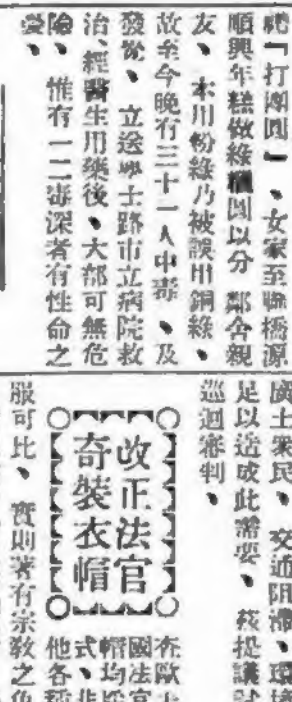 「打團圓」、女家至聯橋源
順興年糕做綠糰圓以分 鄰舍親
友、本用粉綠乃被誤用銅綠、
故至今晚有三十一人中毒、及
發覺、立送學士路市立病院救
治、經醫生用藥後、大部可無危
險、惟有一二毒深者有性命之
憂、
廣土衆民、交通阻滯、環境
足以造成此需要、茲提議試
巡迴審判、
改正法官
奇裝衣帽
查歐士
國法官
帽均
式、非
他各種
服可比、實則著有宗教之色